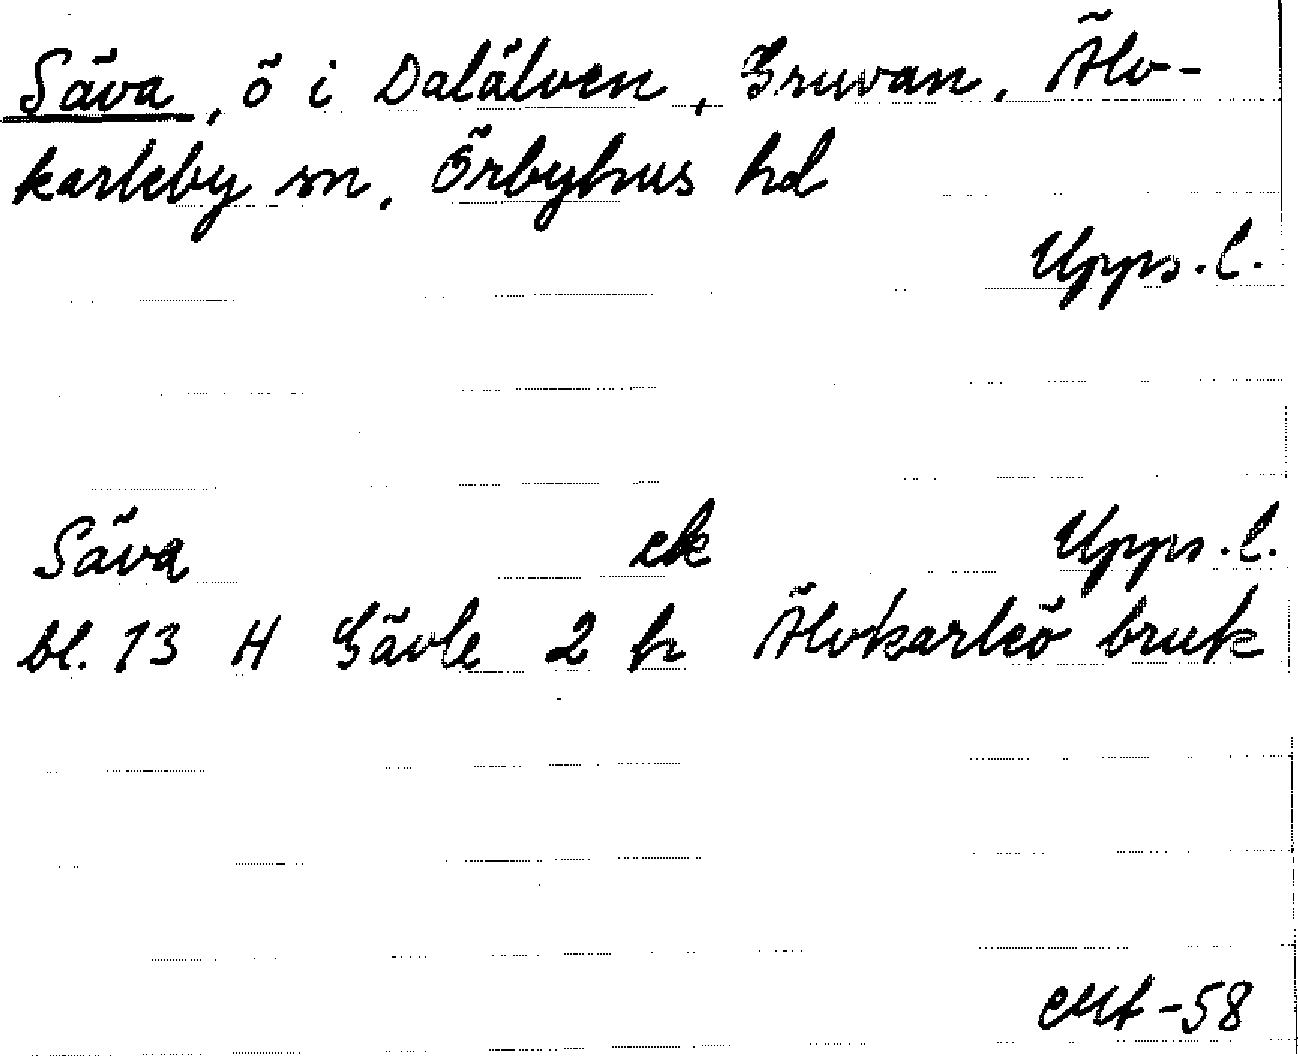 Säva, ö i Dalälven, Gruvan, Älv-
karleby sn, Örbyhus hd
Upps.l.
Säva ek Upps.l.
bl. 13 H Gävle 2 h Älvkarleö bruk
-58